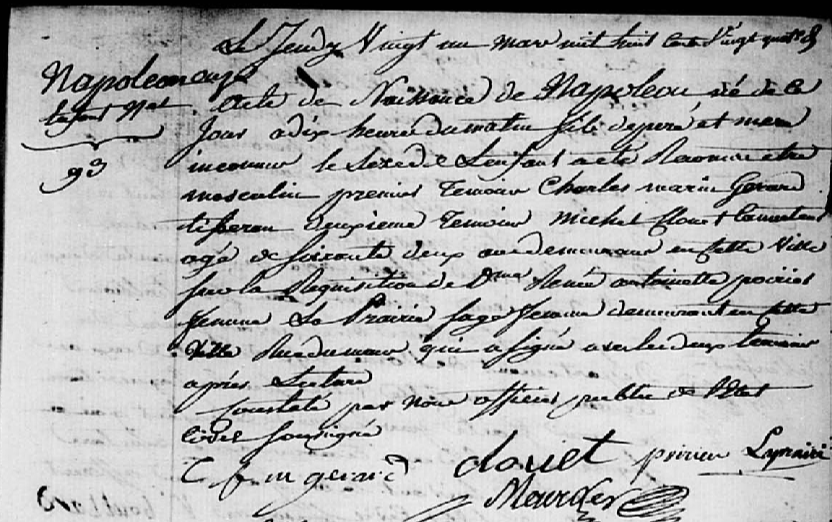 Le Jeudy Vingt un mars mil huit Cent Vingt quatre
Napoleon
Enfant Nat
Acte de Naissance de Napoleon né de Ce
Jour a dix heure du matin fils de peré et mere
93
inconnus le Sexe de Lenfant a eté Reconnu etre
masculin premier Temoin Charles marin Gerard
tisseran deuxieme Temoin Michel
agé de soixante deux ans demeurans en Cette Ville
sur la Requisition de Dme Renée antoinette poirier
femme La Prairie sage femme demeurant en Cette
Ville Rue du qui a signé avec les deux temoins
après Lecture
Constaté par Nous officier public de l'Etat
Civil soussigné
C m gerard clouet poirier Laprairie